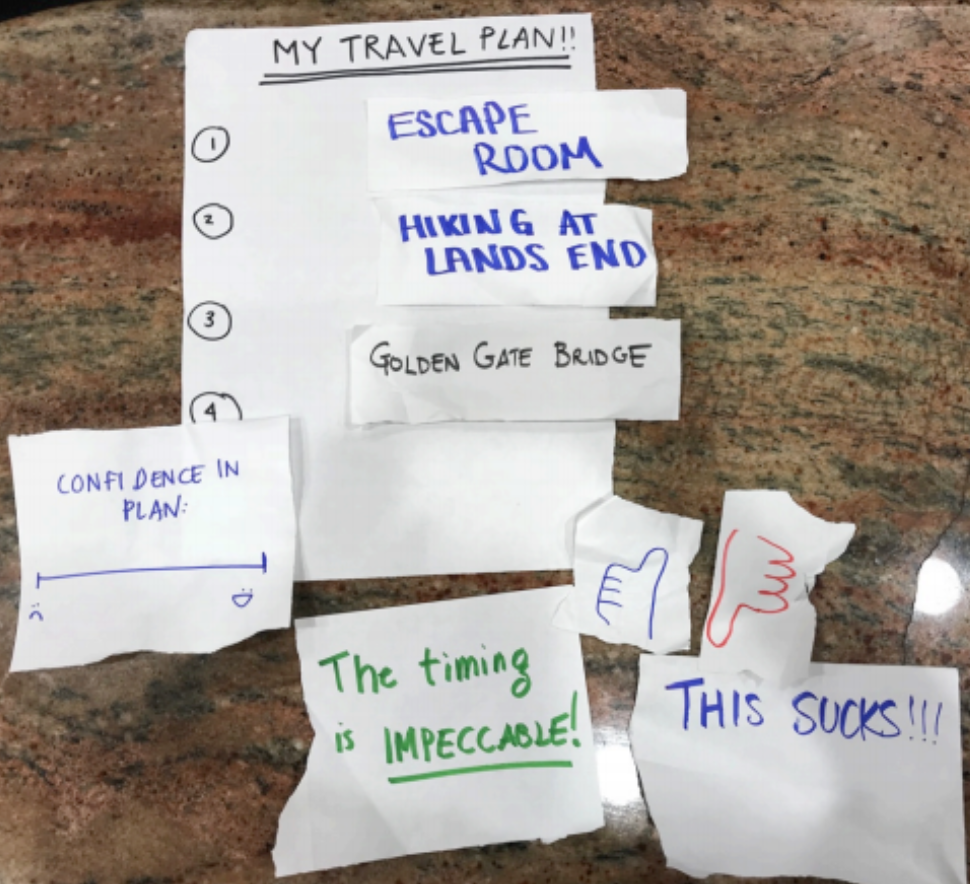 MY TRAVEL PLAN!!
1
ESCAPE
ROOM
2
HIKING AT
LANDS END
3
GOLDEN GATE BRIDGE
4
CONFIDENCE IN
PLAN:
The timing
is IMPECCABLE!
THIS SUCKS!!!